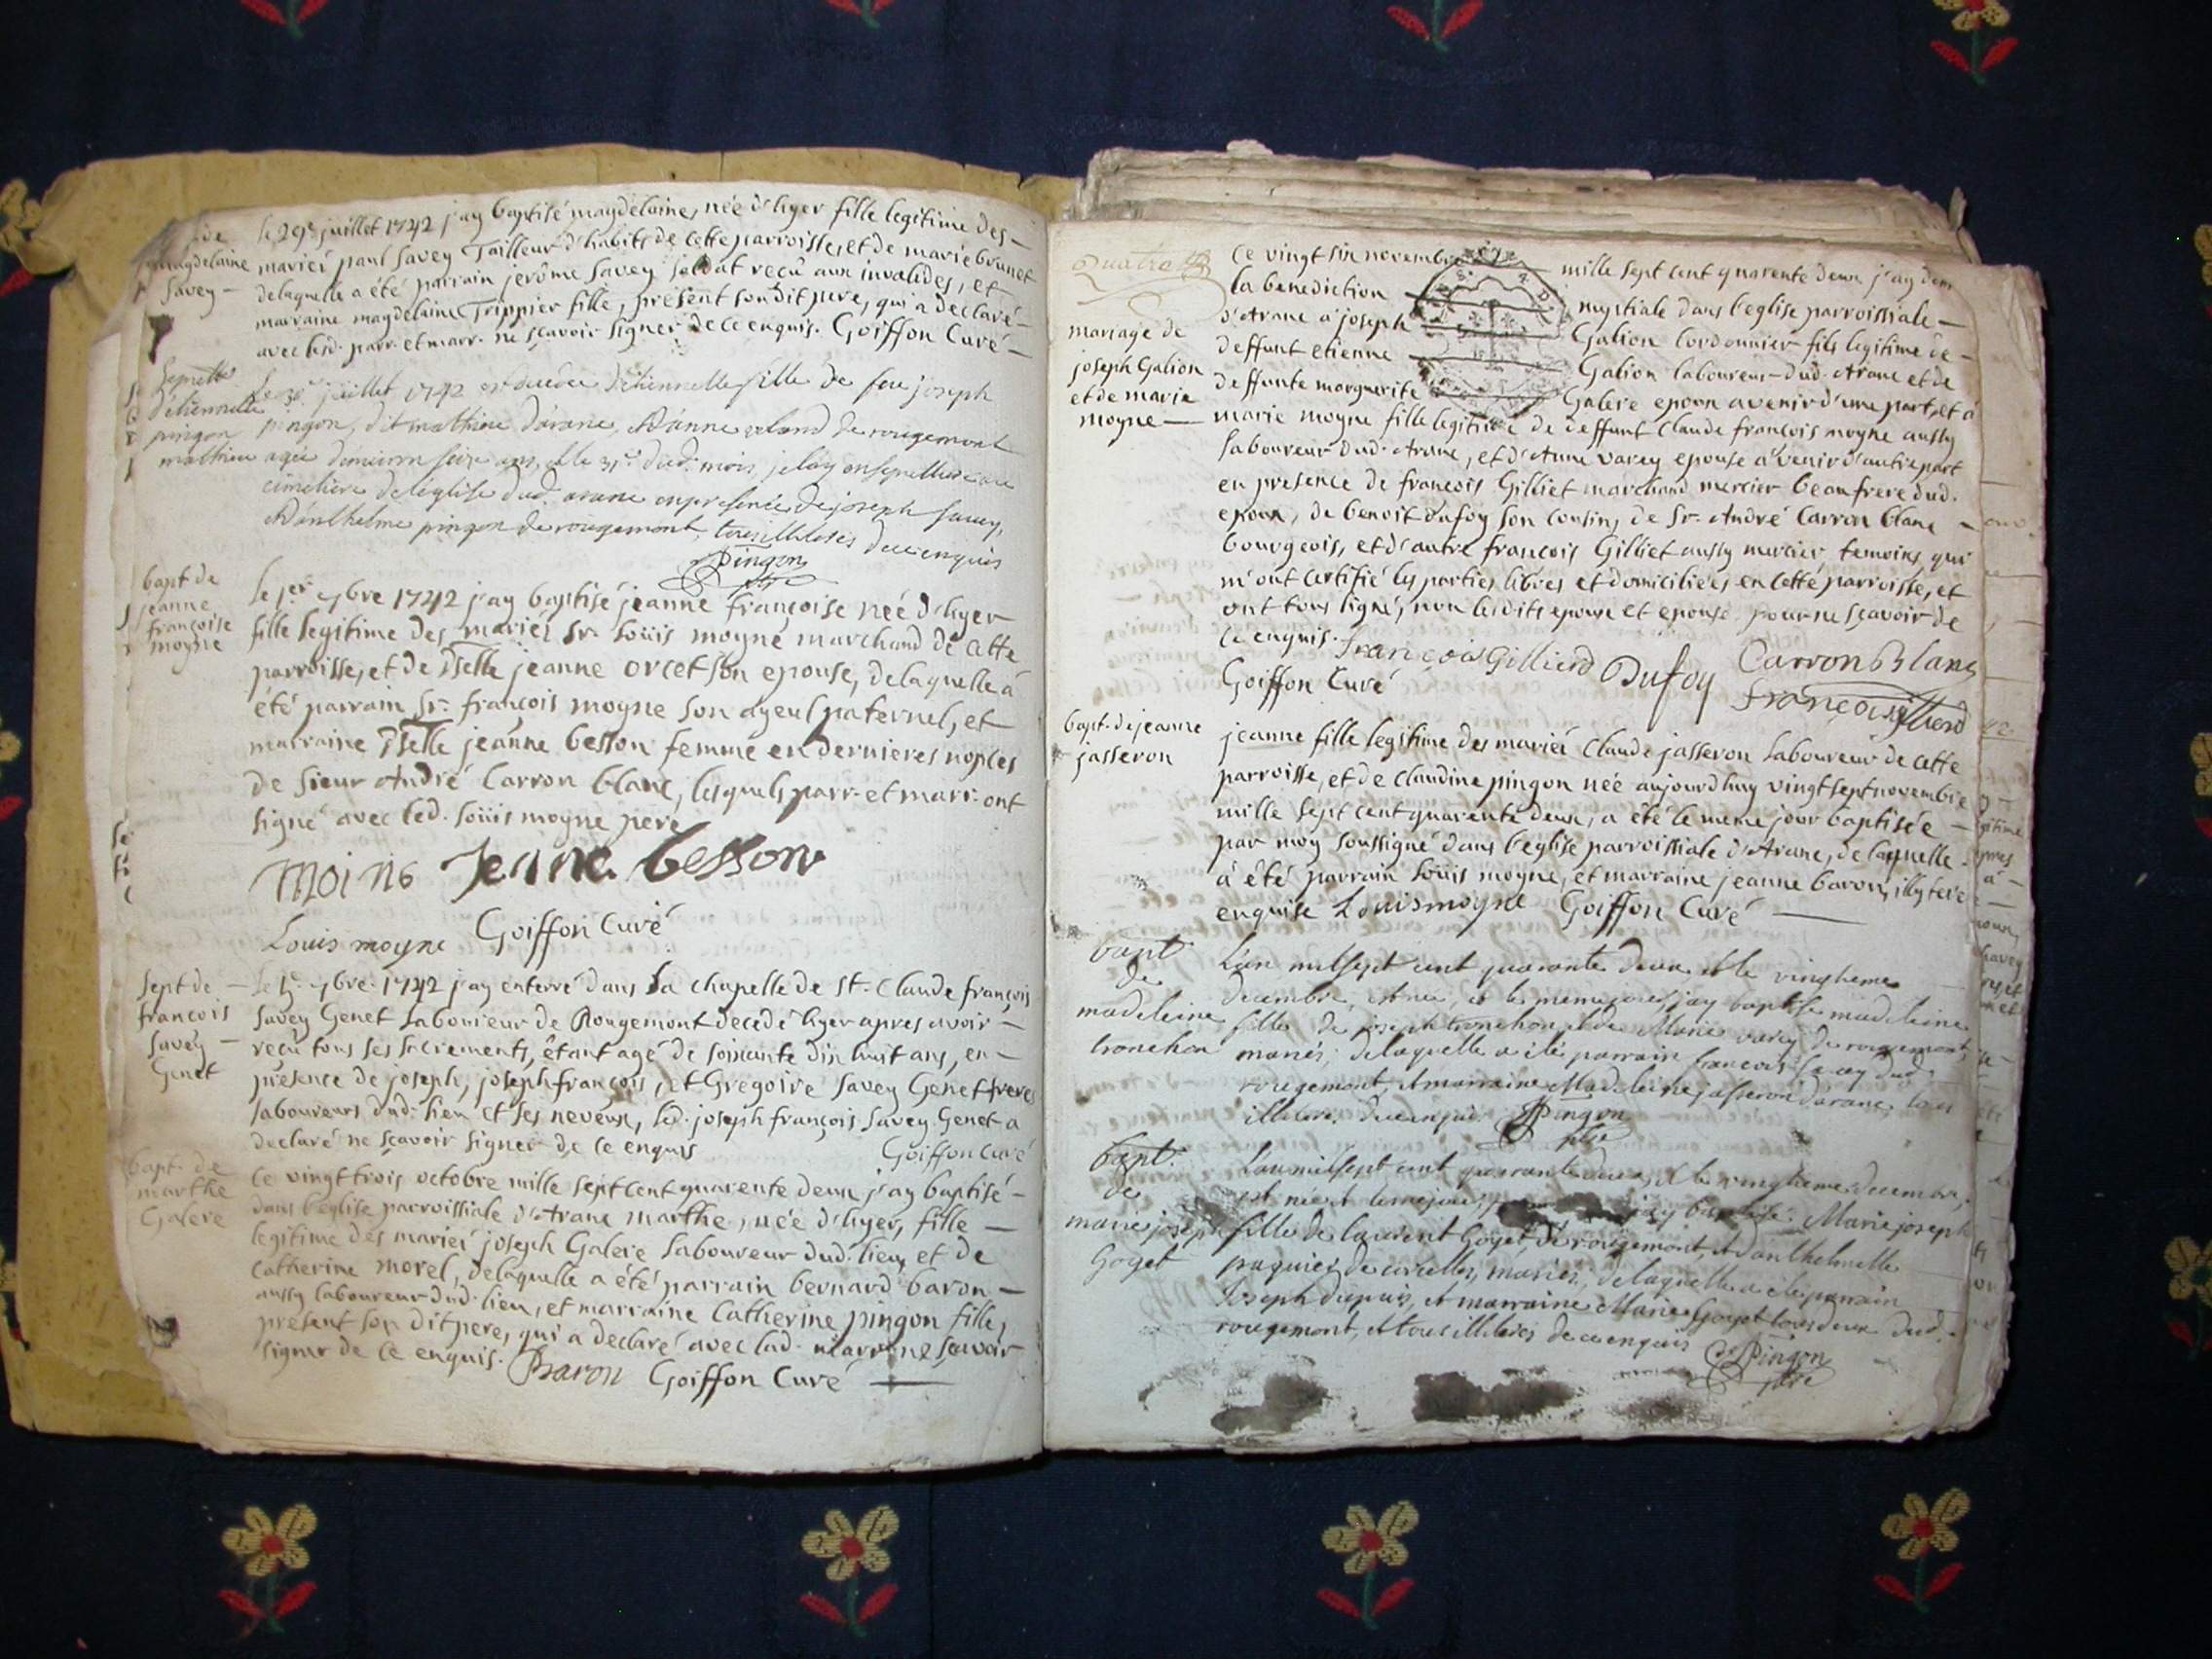 de
magdelaine
Savey —
le 29e juillet 1742 j'ay baptisé magdelaine, née d'hyer fille legitime des —
mariés paul Savey Tailleur d'habits de cette parroisse, et de marie brunet
delaquelle a été parrain jerôme Savey soldat reçû aux invalides, et
marraine magdelaine Trippier fille, présent sondit pere, qui a declaré —
avec lesd. parr. et marr. ne sçavoir signer de ce enquis. Goiffon Curé —
d'étiennette
pingon
mathieu
Le 30e juillet 1742 est decedée d'étiennette fille de feu joseph
pingon, dit mathieu d'arane, de rougemont
agée d'environ ans, et le 31e dud. mois, je l'ay ensepvellie au
cimetiere de l'église dud. arane en presence de joseph Savey,
d'anthelme pingon de rougemont, tous illiteres de ce enquis
Pingon
ptre
bapt. de
jeanne
françoise
moyne
Le 1er 7bre 1742 j'ay baptisé jeanne françoise née d'hyer
fille legitime des mariés Sr. Loüis moyne marchand de cette
parroisse, et de Dselle jeanne orcet son epouse, delaquelle à
été parrain Sr. françois moyne son ayeul paternel, et
marraine Dselle jeanne besson femme en dernieres nopces
de Sieur André Carron blanc, lesquels parr. et marr. ont
signé avec led. Loüis moyne pere
Moine Jeanne besson
Louis moyne Goiffon Curé
Sept. de —
francois
Savey —
Genet
Le 7bre. 1742 j'ay enterré dans La chapelle de St. Claude françois
Savey Genet Laboureur de Rougemont decedé hyer apres avoir —
reçu tous ses sacrements, étant agé de soixante dix huit ans, en —
présence de joseph, joseph françois, et Gregoire Savey Genet freres
laboureurs dud. lieu et ses neveux, led. joseph françois Savey Genet a
declaré ne sçavoir signer de ce enquis Goiffon Curé
bapt. de
marthe
Galere
Ce vingt trois octobre mille sept cent quarente deux j'ay baptisé —
dans l'eglise parroissiale d'Arane marthe, née d'hyer, fille —
legitime des mariés joseph Galere Laboureur dud. lieu, et de
Catherine morel, delaquelle a été parrain bernard baron —
aussy laboureur dud. lieu, et marraine Catherine pingon fille,
présent son dit pere, qui a declaré avec lad. marr. ne sçavoir
signer de ce enquis. Baron Goiffon Curé —
mariage de
joseph Galion
et de marie
moyne —
Ce vingt six novembre mille sept cent quarente deux j'ay donné
la benediction nuptiale dans l'eglise parroissiale —
d'Arane a joseph Galion Cordonnier fils legitime de —
deffunt etienne Galion laboureur dud. Arane et de
deffunte marguerite Galere epoux avenir d'une part, et à
marie moyne fille legitime de deffunt Claude françois moyne aussy
laboureur dud. Arane, et d'Anne varey epouse a venir d'autre part
en presence de francois Gilliet marchand mercier beau frere dud.
epoux, de benoit dufoy son cousin, de Sr. André Carron blanc —
bourgeois, et d'autre françois Gilliet aussy mercier, temoins, qui
m'ont certifié les parties libres et domiciliées en cette parroisse, et
ont tous signé, non lesdits epoux et epouse pour ne sçavoir de
ce enquis. françois Gillierd Dufoy Carron Blanc
Goiffon Curé francois Gillierd
bapt. de jeanne
jasseron
jeanne fille legitime des mariés Claude jasseron Laboureur de cette
parroisse, et de Claudine pingon née aujourd'huy vingt sept novembre
mille sept cent quarente deux, a été le meme jour baptisée —
par moy soussigné dans l'eglise parroissiale d'Arane, de laquelle
à été parrain Loüis moyne, et marraine jeanne baron, illytere
enquise Louis moyne Goiffon Curé —
bapt
de
madeleine
tronchon
L'an mil sept cent quarante deux et le vingtieme
decembre, est née, et le meme jour, j'ay baptisé madeleine
fille de joseph tronchon et de Marie varey de rougemont,
mariés; delaquelle a été parrain francois Savey dud.
rougemont, et marraine Madeleine jasseron d'arane, tous
illiteres de ce enquis. Pingon
ptre
bapt.
de
marie joseph
Goyet
L'an mil sept cent quarante deux, et le vingtieme decembre,
est née et j'ay baptisé Marie joseph
fille de laurent Goyet, de rougemont, et d'anthelmette
de corcelles, mariés; delaquelle a été parrain
Joseph dupuis, et marraine Marie Goyet tous deux dud.
rougemont, et tous illiteres de ce enquis Pingon
ptre